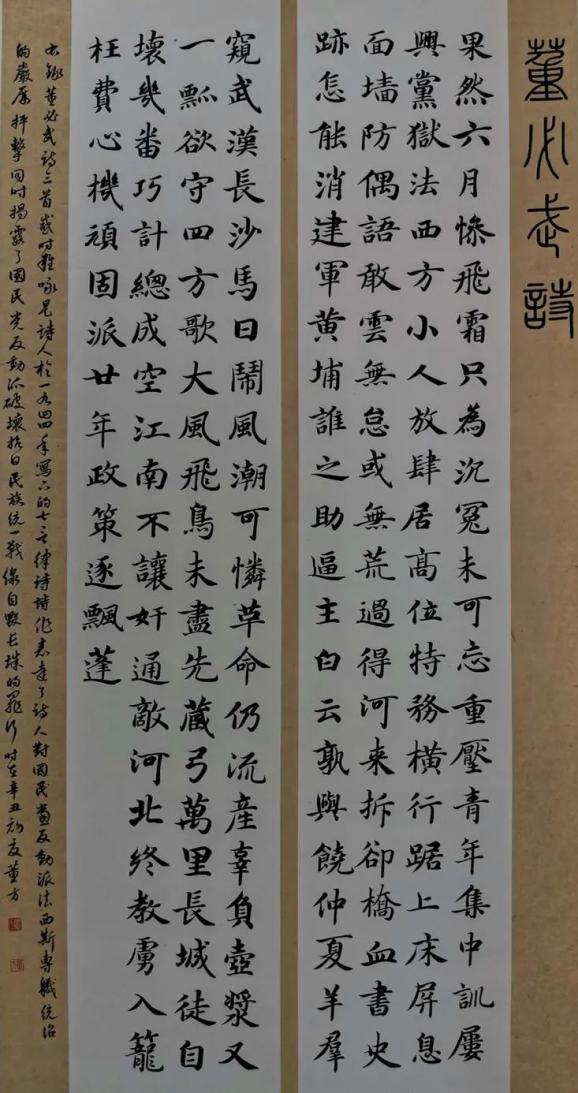 董必武詩
果然六月惨飛霜只為沉冤未可忘重壓青年集中訓屢
興黨獄法西方小人放肆居高位特務橫行踞上床屏息
面墙防偶語敢雲無怠或無荒過得河来拆卻橋血書史
跡怎能消建軍黄埔誰之助逼主白云孰與饒仲夏羊羣
窺武漢長沙馬日鬧風潮可憐革命仍流産辜負壺漿又
一瓢欲守四方歌大風飛鳥未盡先藏弓萬里長城徒自
壞幾番巧計總成空江南不讓奸通敵河北終教虜入籠
枉費心機頑固派廿年政策逐飄蓬
錄董必武詩三首感时雜咏是詩人於一九四四年寫下的七言律詩詩作表達了詩人對國民黨反動派法西斯專制统治
的嚴厲抨擊同时揭露了國民党反動派破壞抗日民族统一戰線自毀长城的罪行时在辛丑初夏董方